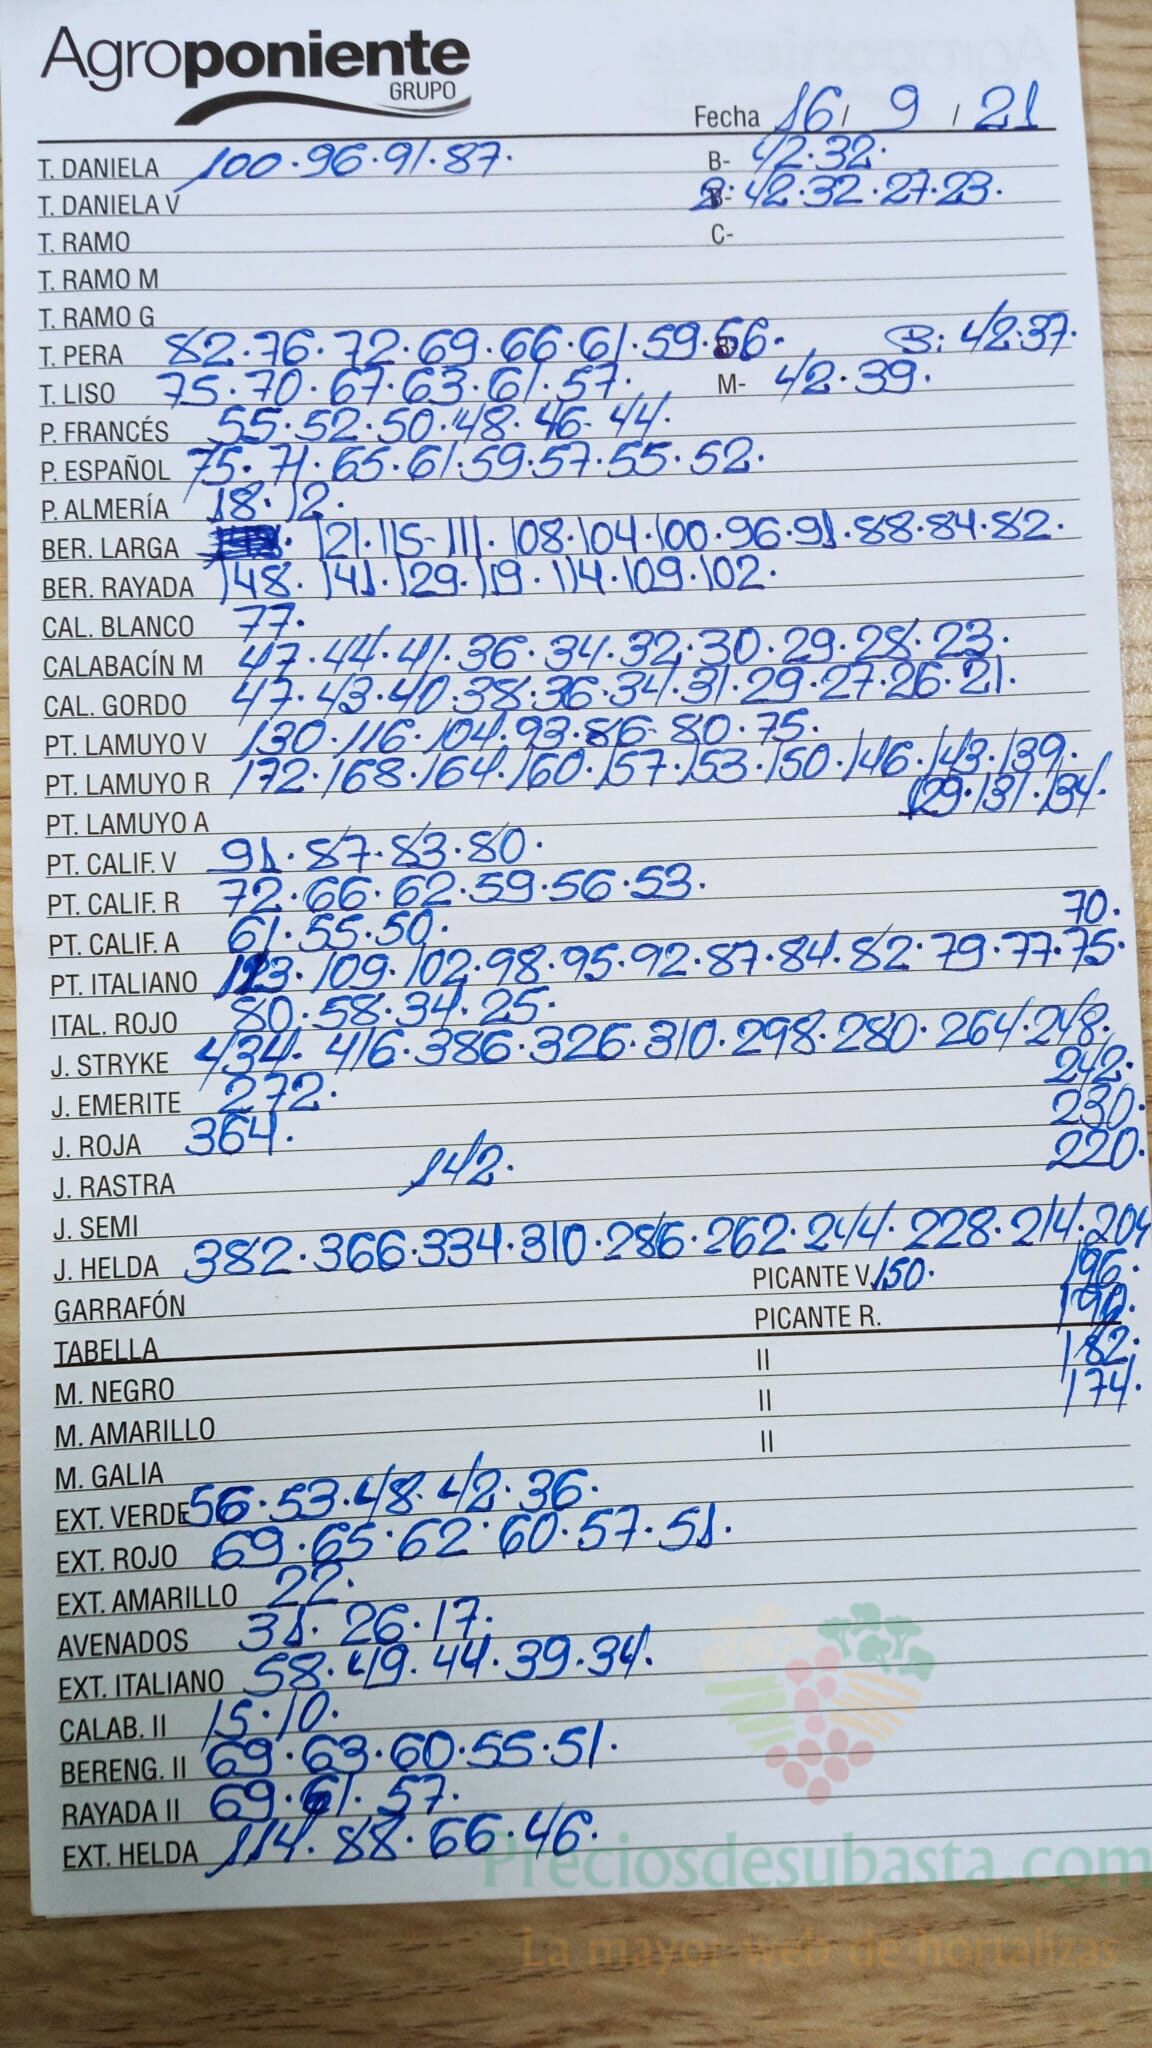 Agroponiente
GRUPO
Fecha 16 / 9 / 21
T. DANIELA 100.96.91.87. B- 42.32.
T. DANIELA V B- 42.32.27.23.
T. RAMO C-
T. RAMO M
T. RAMO G
T. PERA 82.76.72.69.66.61.59.56. B: 42.37.
T. LISO 75.70.67.63.61.57. M- 42.39.
P. FRANCÉS 55.52.50.48.46.44.
P. ESPAÑOL 75.71.65.61.59.57.55.52.
P. ALMERÍA 18.12.
BER. LARGA 121.115-111.108.104.100.96.91.88.84.82.
BER. RAYADA 148.141.129.119.114.109.102.
CAL. BLANCO 77.
CALABACÍN M 47.44.41.36.34.32.30.29.28.23.
CAL. GORDO 47.43.40.38.36.34.31.29.27.26.21.
PT. LAMUYO V 130.116.104.93.86.80.75.
PT. LAMUYO R 172.168.164.160.157.153.150.146.143.139.
PT. LAMUYO A 129.131.134.
PT. CALIF. V 91.87.83.80.
PT. CALIF. R 72.66.62.59.56.53.
PT. CALIF. A 61.55.50. 70.
PT. ITALIANO 123.109.102.98.95.92.87.84.82.79.77.75.
ITAL. ROJO 80.58.34.25.
J. STRYKE 434.416.386.326.310.298.280.264.248.
J. EMERITE 272. 242.
J. ROJA 364. 230.
J. RASTRA 142. 220.
J. SEMI
J. HELDA 382.366.334.310.286.262.244.228.214.204
GARRAFÓN PICANTE V. 150. 196.
TABELLA PICANTE R. 190.
M. NEGRO II 182.
M. AMARILLO II 174.
M. GALIA II
EXT. VERDE 56.53.48.42.36.
EXT. ROJO 69.65.62.60.57.51.
EXT. AMARILLO 22.
AVENADOS 31.26.17.
EXT. ITALIANO 58.49.44.39.34.
CALAB. II 15.10.
BERENG. II 69.63.60.55.51.
RAYADA II 69.61.57.
EXT. HELDA 114.88.66.46.
Preciosdesubasta.com
La mayor web de hortalizas